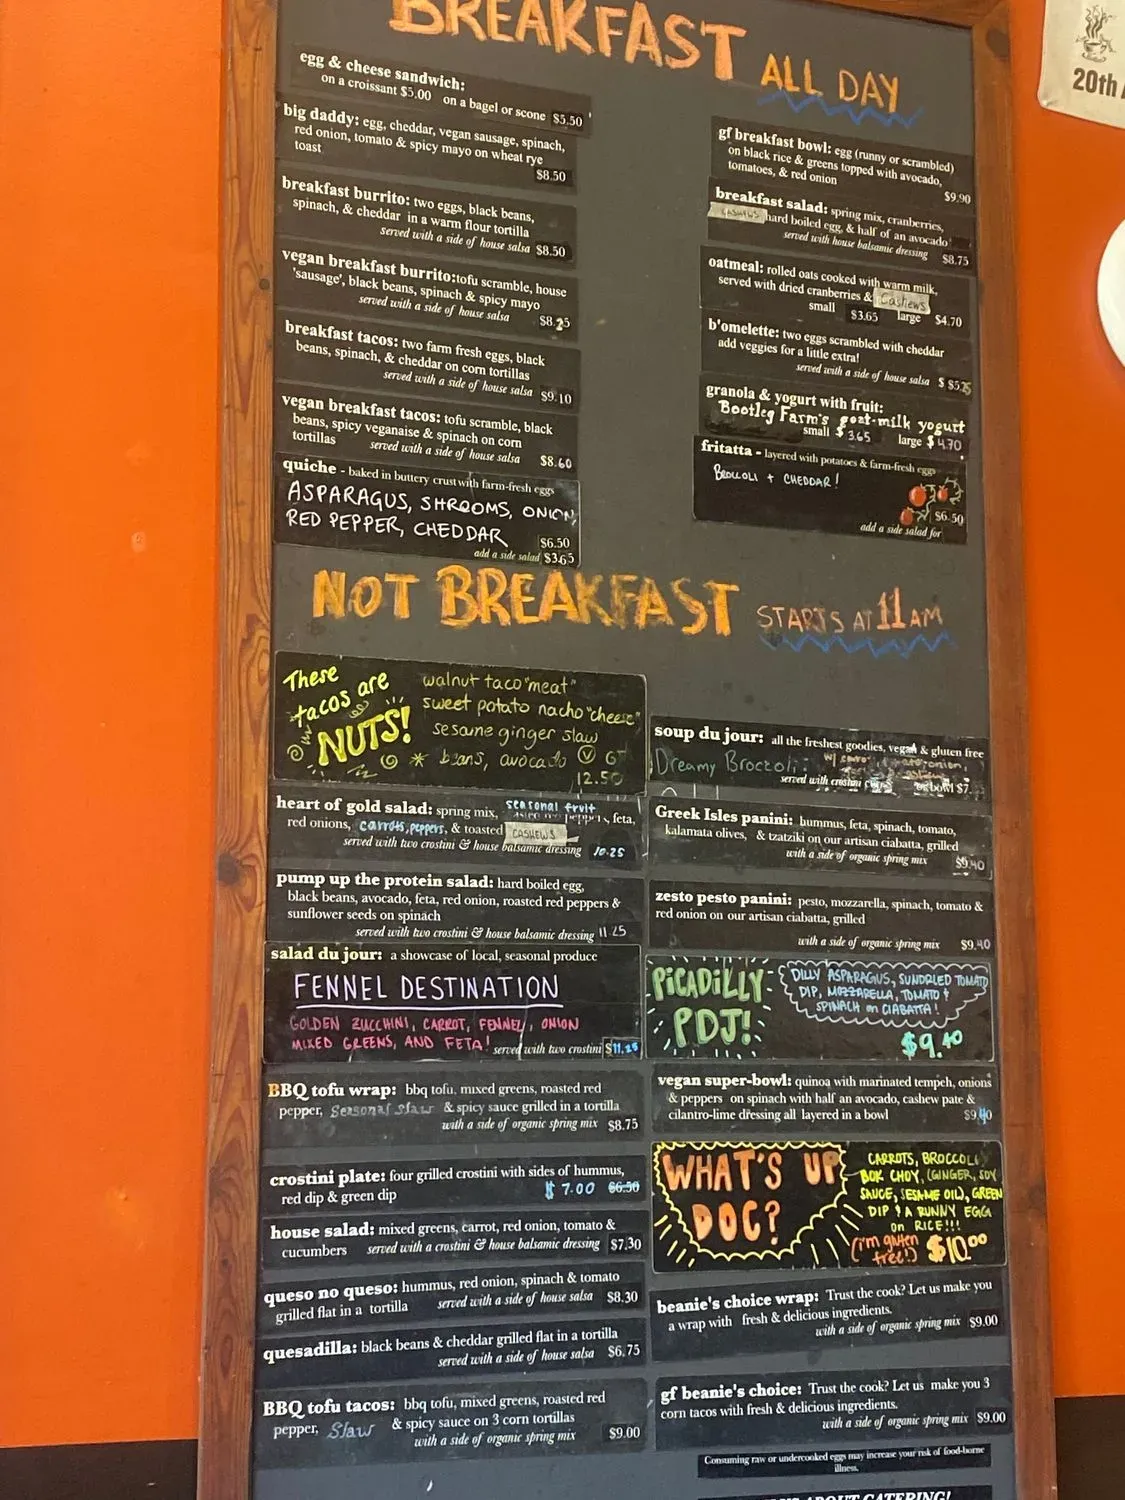 BREAKFAST ALL DAY
20th
egg & cheese sandwich:
on a croissant $5.00 on a bagel or scone $5.50
big daddy: egg, cheddar, vegan sausage, spinach,
red onion, tomato & spicy mayo on wheat rye
toast
$8.50
breakfast burrito: two eggs, black beans,
spinach, & cheddar in a warm flour tortilla
served with a side of house salsa $8.50
vegan breakfast burrito:tofu scramble, house
'sausage', black beans, spinach & spicy mayo
served with a side of house salsa $8.25
breakfast tacos: two farm fresh eggs, black
beans, spinach, & cheddar on corn tortillas
served with a side of house salsa $9.10
vegan breakfast tacos: tofu scramble, black
beans, spicy veganaise & spinach on corn
tortillas served with a side of house salsa $8.60
quiche - baked in buttery crust with farm-fresh eggs
ASPARAGUS, SHROOMS, ONION,
RED PEPPER, CHEDDAR $6.50
add a side salad $3.65
gf breakfast bowl: egg (runny or scrambled)
on black rice & greens topped with avocado,
tomatoes, & red onion
$9.90
breakfast salad: spring mix, cranberries,
CASHEWS hard boiled egg, & half of an avocado
served with house balsamic dressing $8.75
oatmeal: rolled oats cooked with warm milk,
served with dried cranberries & Cashews
small $3.65 large $4.70
b'omelette: two eggs scrambled with cheddar
add veggies for a little extra!
served with a side of house salsa $ $5.25
granola & yogurt with fruit:
Bootleg Farm's goat-milk yogurt
small $3.65 large $4.70
fritatta - layered with potatoes & farm-fresh eggs
BROCCOLI + CHEDDAR!
$6.50
add a side salad for
NOT BREAKFAST STARTS AT 11 AM
These
tacos are
NUTS!
walnut taco "meat"
sweet potato nacho "cheese"
sesame ginger slaw
* beans, avocado V G
12.50
heart of gold salad: spring mix, seasonal fruit, feta,
red onions, carrots, peppers, & toasted CASHEWS
served with two crostini & house balsamic dressing 10.25
pump up the protein salad: hard boiled egg,
black beans, avocado, feta, red onion, roasted red peppers &
sunflower seeds on spinach
served with two crostini & house balsamic dressing 11.25
salad du jour: a showcase of local, seasonal produce
FENNEL DESTINATION
GOLDEN ZUCCHINI, CARROT, FENNEL, ONION
MIXED GREENS, AND FETA! served with two crostini $11.25
BBQ tofu wrap: bbq tofu, mixed greens, roasted red
pepper, Seasonal Slaw & spicy sauce grilled in a tortilla
with a side of organic spring mix $8.75
crostini plate: four grilled crostini with sides of hummus,
red dip & green dip $7.00 $6.50
house salad: mixed greens, carrot, red onion, tomato &
cucumbers served with a crostini & house balsamic dressing $7.30
queso no queso: hummus, red onion, spinach & tomato
grilled flat in a tortilla served with a side of house salsa $8.30
quesadilla: black beans & cheddar grilled flat in a tortilla
served with a side of house salsa $6.75
BBQ tofu tacos: bbq tofu, mixed greens, roasted red
pepper, Slaw & spicy sauce on 3 corn tortillas
with a side of organic spring mix $9.00
soup du jour: all the freshest goodies, vegan & gluten free
Dreamy Broccoli: w/
served with crostini bowl $7.
Greek Isles panini: hummus, feta, spinach, tomato,
kalamata olives, & tzatziki on our artisan ciabatta, grilled
with a side of organic spring mix $9.40
zesto pesto panini: pesto, mozzarella, spinach, tomato &
red onion on our artisan ciabatta, grilled
with a side of organic spring mix $9.40
PiCADiLLY
PDJ!
DILLY ASPARAGUS, SUNDRIED TOMATO
DIP, MOZZARELLA, TOMATO &
SPINACH on CIABATTA!
$9.40
vegan super-bowl: quinoa with marinated tempeh, onions
& peppers on spinach with half an avocado, cashew pate &
cilantro-lime dressing all layered in a bowl
$9.40
WHAT'S UP
DOC?
CARROTS, BROCCOLI,
BOK CHOY, (GINGER, SOY
SAUCE, SESAME OIL), GREEN
DIP & A RUNNY EGG
on RICE!!!
(i'm gluten
free!) $10.00
beanie's choice wrap: Trust the cook? Let us make you
a wrap with fresh & delicious ingredients.
with a side of organic spring mix $9.00
gf beanie's choice: Trust the cook? Let us make you 3
corn tacos with fresh & delicious ingredients.
with a side of organic spring mix $9.00
Consuming raw or undercooked eggs may increase your risk of food-borne
illness.
ABOUT CATERING!